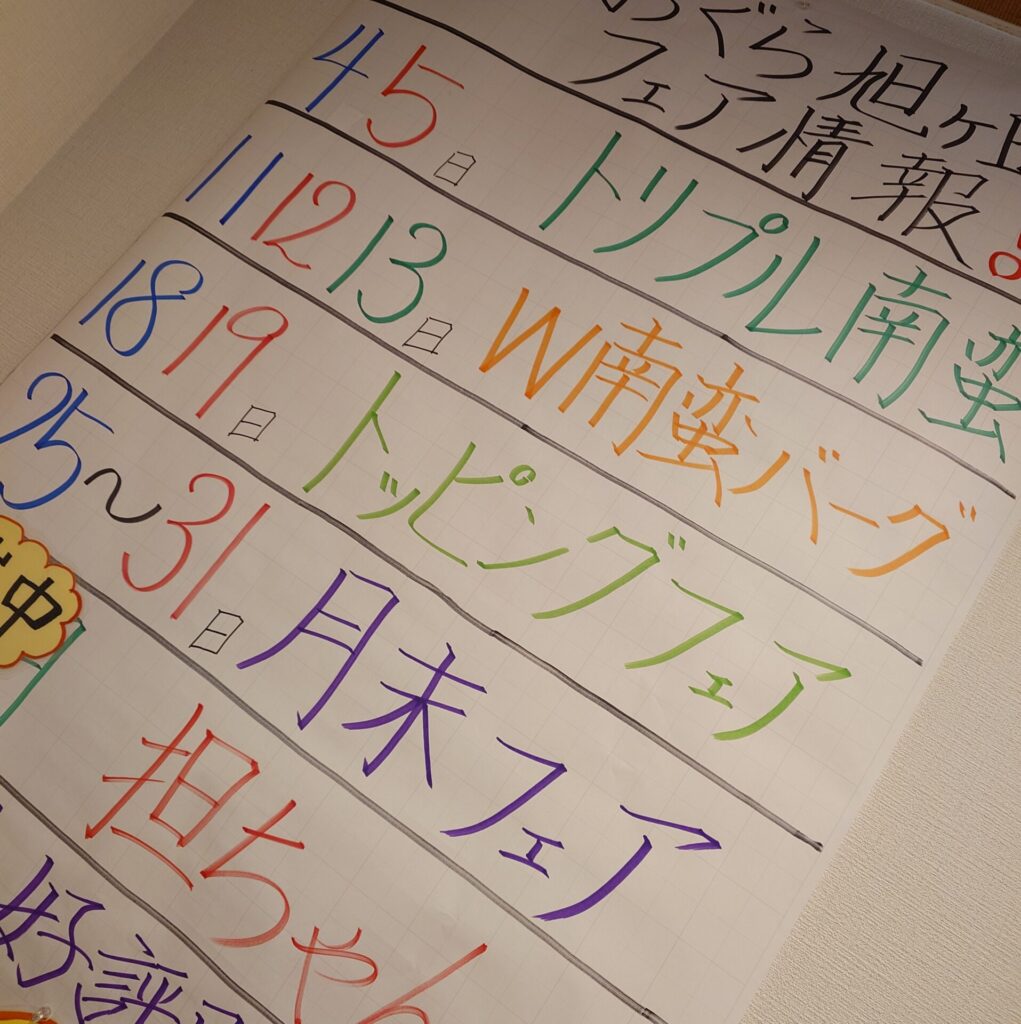 ぐら旭ヶ
フェア情報!
4 5日 トリプル南蛮
11 12 13日 W南蛮バーグ
18 19日 トッピングフェア
25〜31日 月末フェア
中
担ちゃん
好評